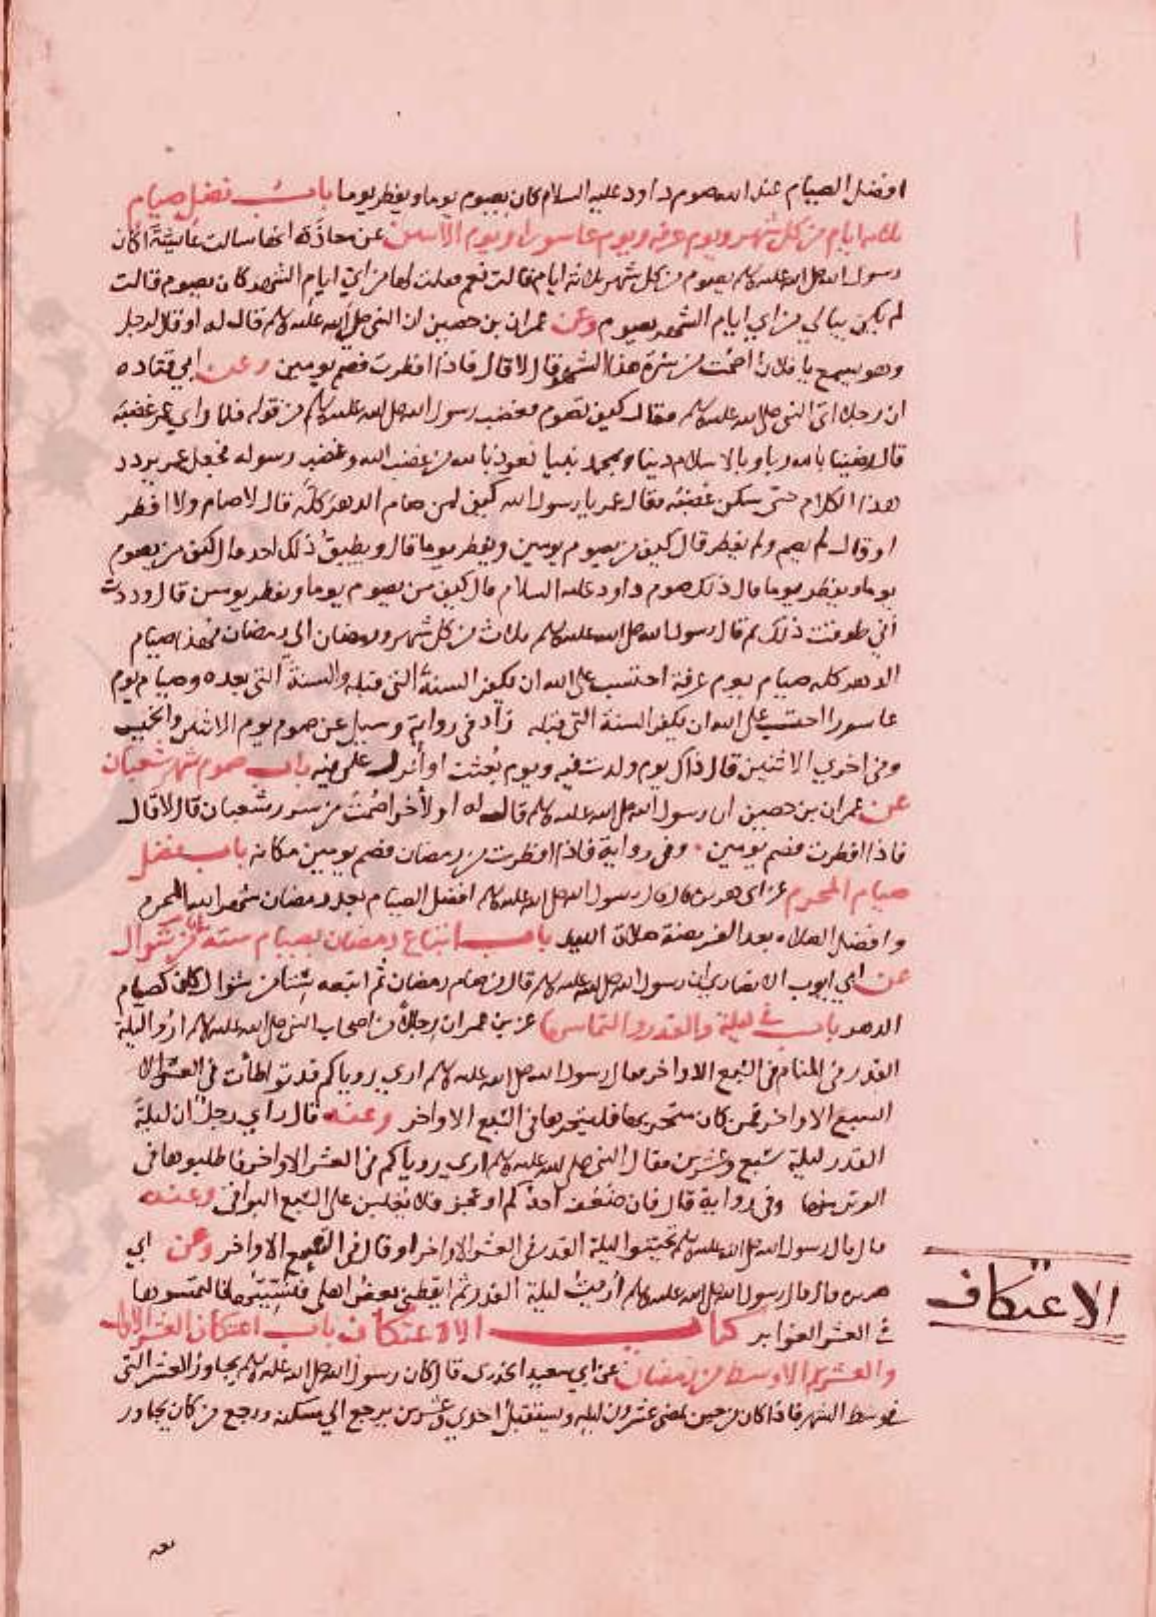 افضل الصيام عند الله صوم داود عليه السلام كان يصوم يوما ويفطر يوما باب فضل صيام
ثلاثه ايام من كل شهر ويوم عرفه ويوم عاسورا ويوم الاثنين عن معاذة انها سالت عائشة اكان
رسول الله صلى الله عليه وسلم يصوم من كل شهر ثلاثة ايام قالت نعم فقلت لها من اي ايام الشهر كان يصوم قالت
لم يكن يبالي من اي ايام الشهر يصوم وعن عمران بن حصين ان النبي صلى الله عليه وسلم قال له او قال لرجل
وهو يسمع يا فلان اصمت من سرة هذا الشهر قال لا قال فاذا افطرت فصم يومين وعن ابي قتاده
ان رجلا اتى النبي صلى الله عليه وسلم فقال كيف تصوم فغضب رسول الله صلى الله عليه وسلم من قوله فلما راي عمر غضبه
قال رضينا بالله ربا وبالاسلام دينا وبمحمد نبيا نعوذ بالله من غضب الله وغضب رسوله فجعل عمر يردد
هذا الكلام حتى سكن غضبه فقال عمر يا رسول الله كيف لمن صام الدهر كله قال لا صام ولا افطر
او قال لم يصم ولم يفطر قال كيف من يصوم يومين ويفطر يوما قال ويطيق ذلك احد قال كيف من يصوم
يوما ويفطر يوما قال ذلك صوم داود عليه السلام قال كيف من يصوم يوما ويفطر يومين قال وددت
اني طوقت ذلك ثم قال رسول الله صلى الله عليه وسلم ثلاث من كل شهر ورمضان الي رمضان فهذا صيام
الدهر كله صيام يوم عرفة احتسب على الله ان يكفر السنة التي قبله والسنة التي بعده وصيام يوم
عاسورا احتسب على الله ان يكفر السنة التي قبله زاد في رواية وسيل عن صوم يوم الاثنين والخميس
وفي اخري الاثنين قال ذاك يوم ولدت فيه ويوم بعثت او انزل علي فيه باب صوم شهر شعبان
عن عمران بن حصين ان رسول الله صلى الله عليه وسلم قال له او لاخر اصمت من سرر شعبان قال لا قال
فاذا افطرت فصم يومين وفي رواية فاذا افطرت من رمضان فصم يومين مكانه باب فضل
صيام المحرم عن ابي هريرة قال قال رسول الله صلى الله عليه وسلم افضل الصيام بعد رمضان شهر الله المحرم
وافضل الصلاه بعد الفريضة صلاة الليل باب اتباع رمضان بصيام ستة من شوال
عن ابي ايوب الانصاري ان رسول الله صلى الله عليه وسلم قال من صام رمضان ثم اتبعه ستا من شوال كان كصيام
الدهر باب في ليلة القدر والتماسها عن بن عمر ان رجالا من اصحاب النبي صلى الله عليه وسلم اروا ليلة
القدر في المنام في السبع الاواخر فقال رسول الله صلى الله عليه وسلم اري روياكم قد تواطأت في
السبع الاواخر فمن كان متحريها فليتحرها في السبع الاواخر وعنه قال راي رجل ان ليلة
القدر ليلة سبع وعشرين فقال النبي صلى الله عليه وسلم اري روياكم في العشر الاواخر فاطلبوها في
الوتر منها وفي رواية قال فان ضعف احدكم او عجز فلا يغلبن على السبع البواقي وعنه
قال قال رسول الله صلى الله عليه وسلم تحينوا ليلة القدر في العشر الاواخر او قال في السبع الاواخر وعن ابي
هريرة قال قال رسول الله صلى الله عليه وسلم اريت ليلة القدر ثم ايقظني بعض اهلي فنسيتها فالتمسوها
في العشر الغوابر كتاب الاعتكاف باب اعتكاف العشر الاول
والعشر الاوسط من رمضان عن ابي سعيد الخدري قال كان رسول الله صلى الله عليه وسلم يجاور العشر التي
في وسط الشهر فاذا كان من حين تمضي عشرون ليلة ويستقبل احدي وعشرين يرجع الي مسكنه ورجع من كان يجاور
الاعتكاف
معه